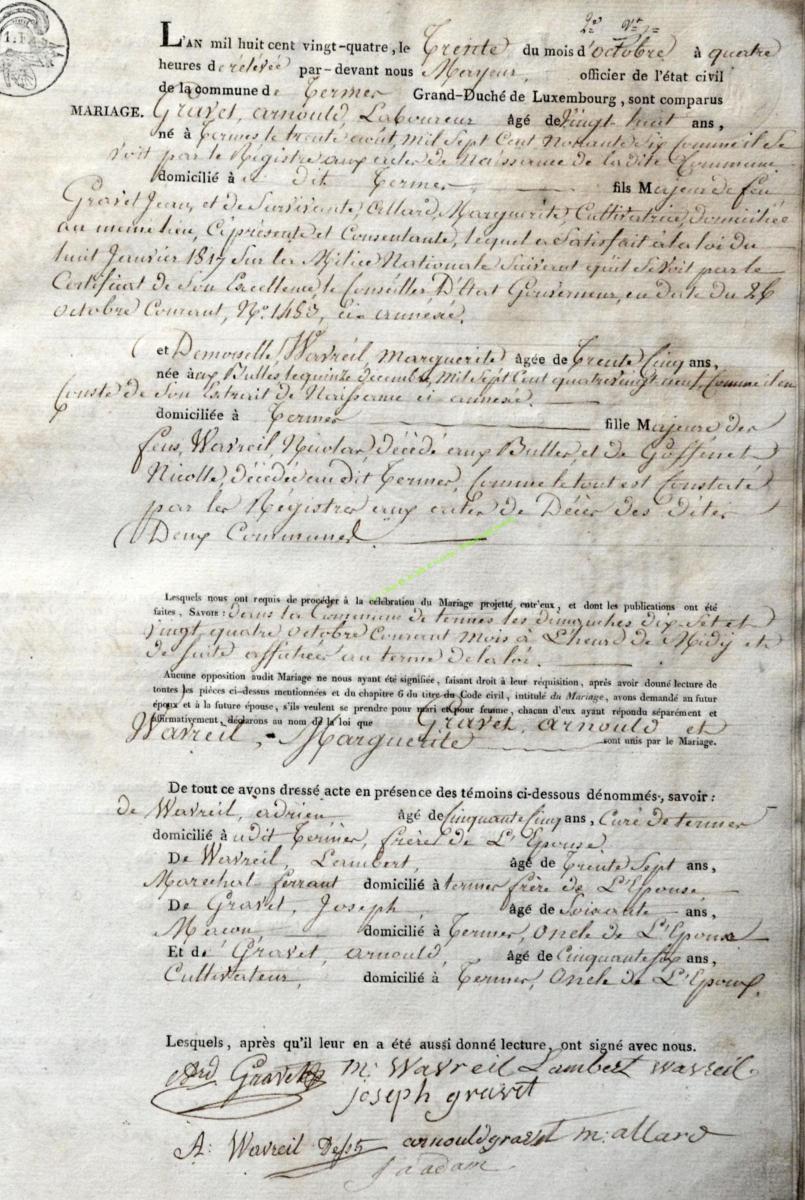 L'AN mil huit cent vingt-quatre, le Trente du mois d'octobre à quatre
heures de relevée par-devant nous Mayeur, officier de l'état civil
de la commune de Termes Grand-Duché de Luxembourg, sont comparus
MARIAGE. Gravet, arnould, Laboureur âgé de vingt huit ans,
né à Termes le trente août, Mil Sept Cent Nonante Six comme il se
voit par le Régistre aux actes de Naissance de la dite Commune
domicilié à u dit Termes fils Majeur de feu
Gravet Jean, et de Survivante, Allard, Marguerite, Cultivatrice, domiciliée
au même lieu, Ci présente et Consentante, lequel a Satisfait à la loi du
huit Janvier 1817 Sur la Milice Nationale Suivant qu'il Se voit par le
Certificat de Son Excellence le Conseiller D'État Gouverneur, en date du 26
octobre Courant, No. 1453, ci annexé.
et Demoiselle, Wavreil, Marguerite âgée de Trente Cinq ans,
née à ux Bulles le quinze decembre, Mil Sept Cent quatre vingt neuf, Comme il en
Conste de Son Extrait de Naissance ci annexé.
domiciliée à Termes fille Majeure des
feus, Wavreil, Nicolas, décédé aux Bulles et de Goffinet
Nicolle, décédée au dit Termes, Comme le tout est Constaté
par les Régistres aux actes de Décès des dites
Deux Communes.
Lesquels nous ont requis de procéder à la célébration du Mariage projetté entr'eux, et dont les publications ont été
faites, SAVOIR: dans la Commune de termes les dimanches dix Set et
vingt quatre octobre Courant mois à L'heure de Midy et
de suite affichées au terme de la loi.
Aucune opposition audit Mariage ne nous ayant été signifiée, faisant droit à leur réquisition, après avoir donné lecture de
toutes les pièces ci-dessus mentionnées et du chapitre 6 du titre du Code civil, intitulé du Mariage, avons demandé au futur
époux et à la future épouse, s'ils veulent se prendre pour mari et pour femme, chacun d'eux ayant répondu séparément et
affirmativement, déclarons au nom de la loi que Gravet, arnould et
Wavreil, Marguerite sont unis par le Mariage.
De tout ce avons dressé acte en présence des témoins ci-dessous dénommés, savoir:
de Wavreil, adrien âgé de Cinquante Cinq ans, Curé de termes
domicilié à udit Termes, frère de L'Epouse.
De Wavreil, Lambert, âgé de Trente Sept ans,
Marechal ferrant domicilié à termes frère de L'Epouse
De Gravet, Joseph, âgé de Soixante ans,
Maçon domicilié à Termes, Oncle de L'Epoux
Et de Gravet, arnould, âgé de Cinquante six ans,
Cultivateur, domicilié à Termes, Oncle de L'Epoux.
Lesquels, après qu'il leur en a été aussi donné lecture, ont signé avec nous.
Ard Gravet m: Wavreil Lambert wavreil
joseph gravet
A: Wavreil arnould gravet m: allard